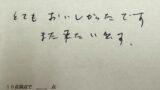 とてもおいしかったです
また来たいです。
10点満点で____点